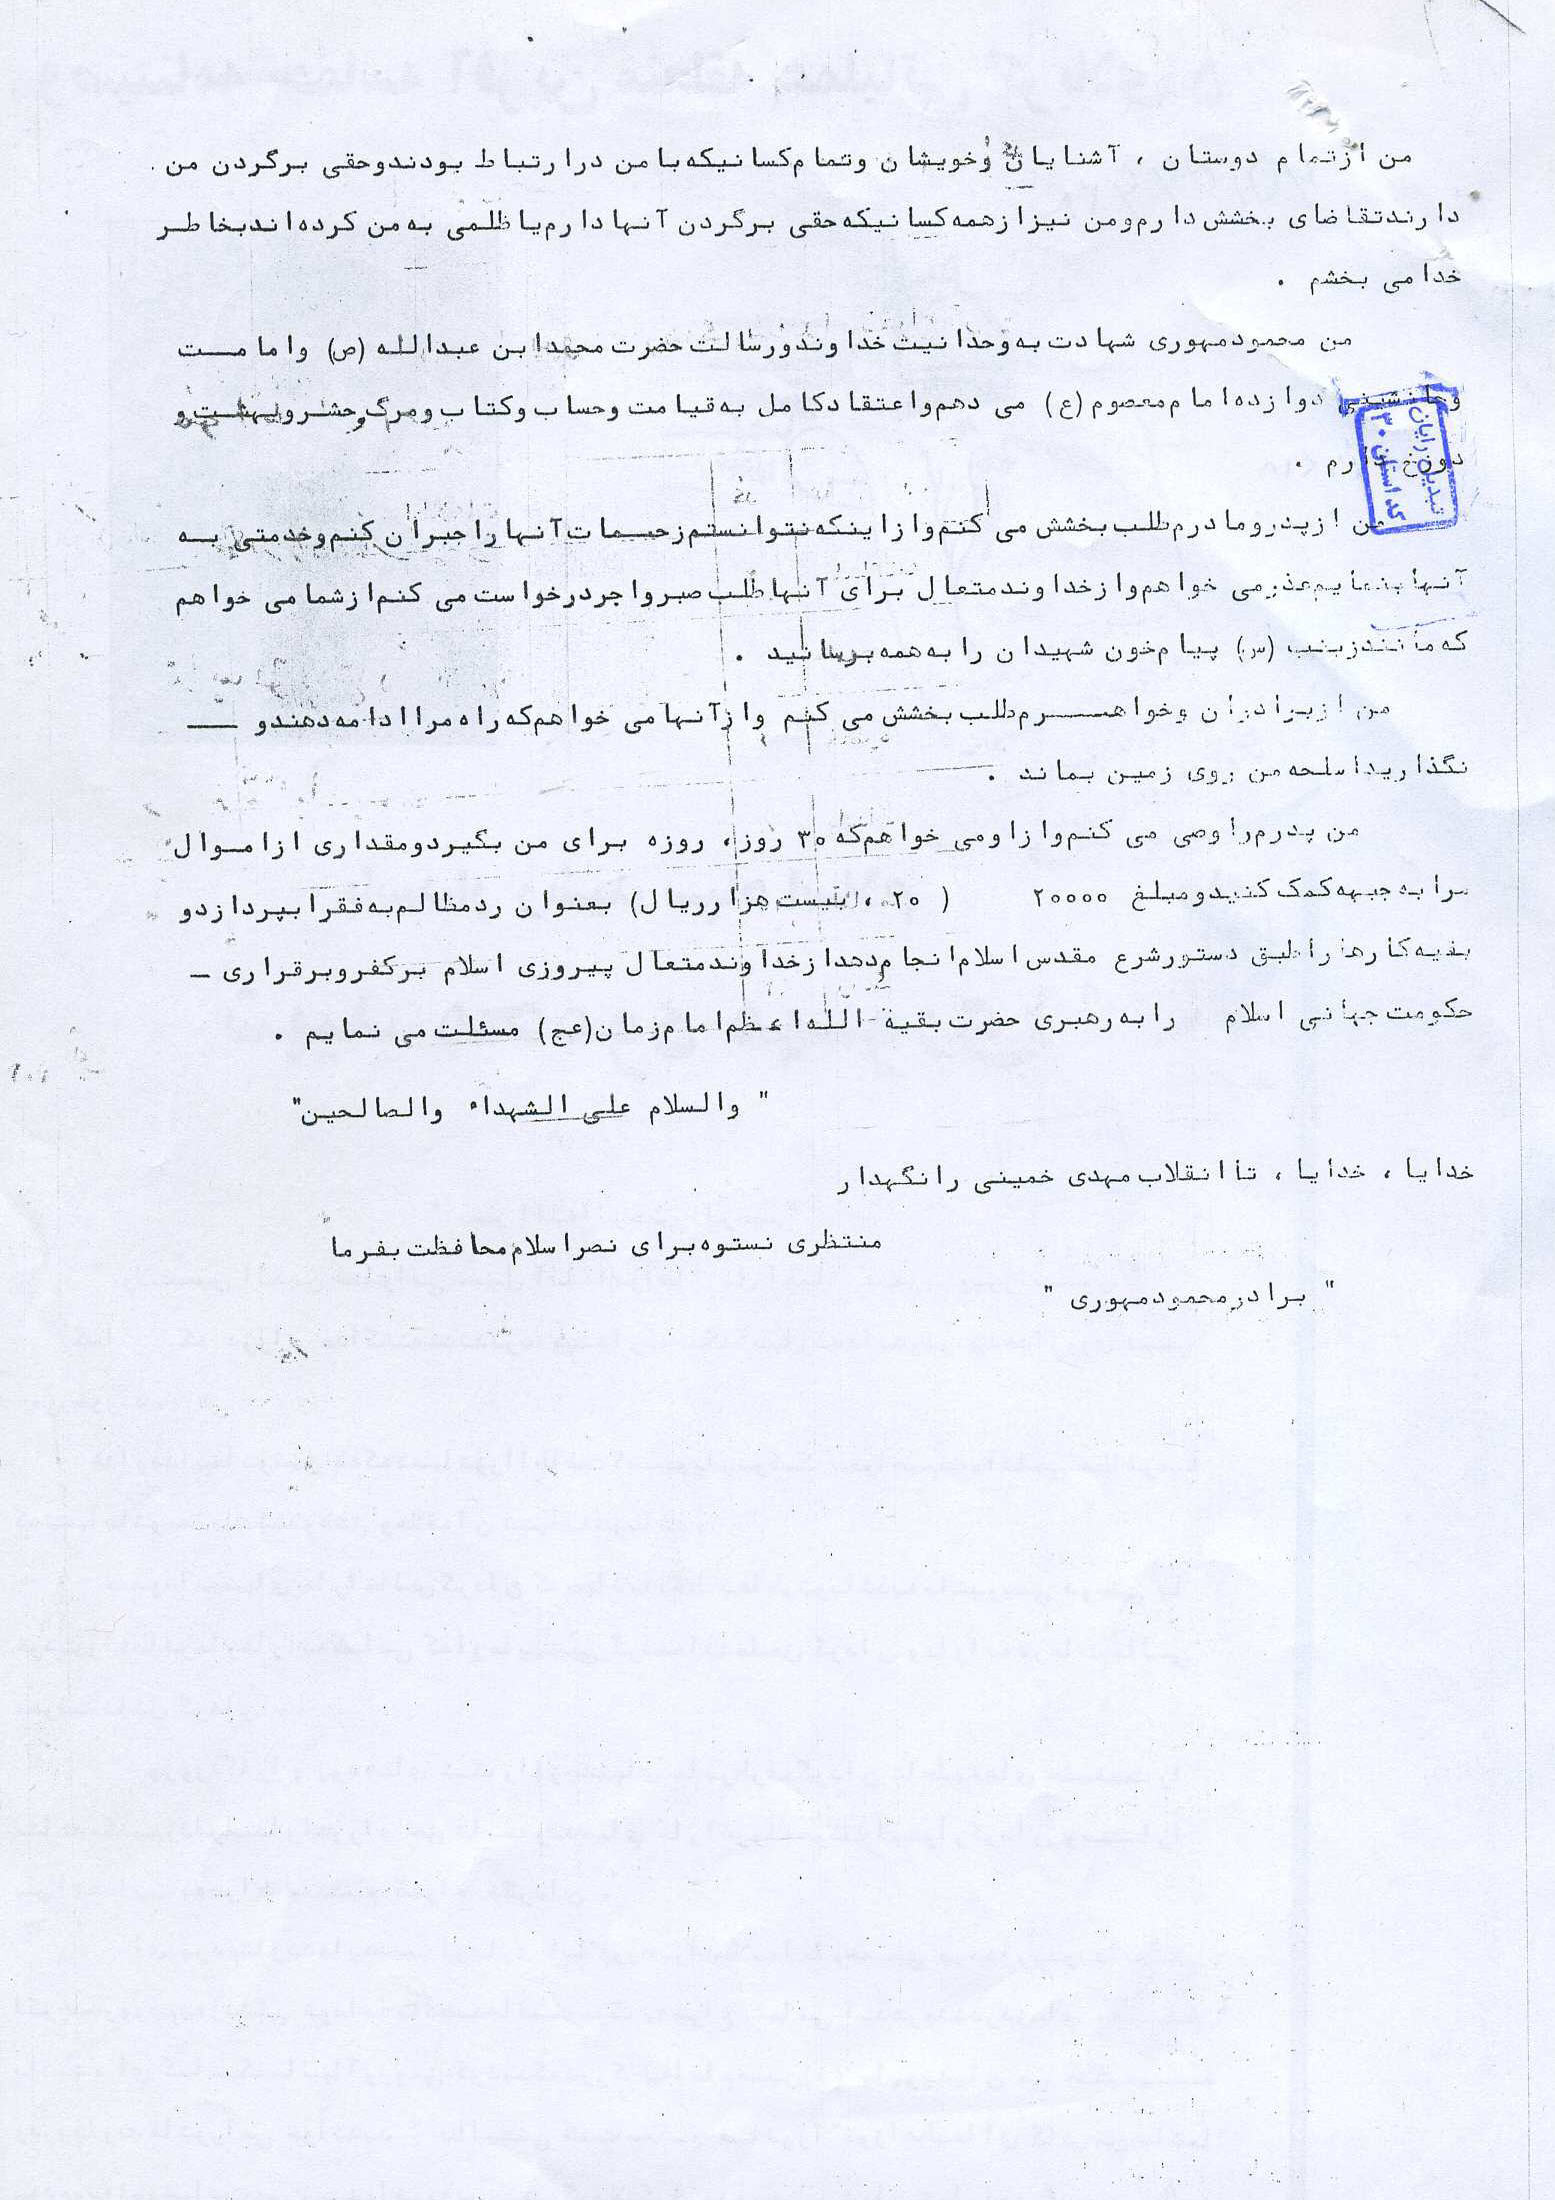 من از تمام دوستان ، آشنایان وخویشان وتمام کسانیکه با من در ارتباط بودند وحقی برگردن من .
دارند تقاضای بخشش دارم ومن نیز از همه کسانیکه حقی برگردن آنها دارم یا ظلمی به من کرده اند بخاطر
خدا می بخشم .
من محمود مهوری شهادت به وحدانیت خداوند ورسالت حضرت محمد ابن عبدالله (ص) وامامت
وجانشینی دوازده امام معصوم (ع) می دهم واعتقاد کامل به قیامت وحساب وکتاب ومرگ وحشر وبهشت و
دوزخ دارم .
من از پدر ومادرم طلب بخشش می کنم واز اینکه نتوانستم زحمات آنها را جبران کنم وخدمتی به
آنها بنمایم عذر می خواهم واز خداوند متعال برای آنها طلب صبر واجر درخواست می کنم از شما می خواهم
که مانند زینب (س) پیام خون شهیدان را به همه برسانید .
من از برادران وخواهرم طلب بخشش می کنم واز آنها می خواهم که راه مرا ادامه دهند و —
نگذارید اسلحه من روی زمین بماند .
من پدرم را وصی می کنم واز او می خواهم که ۳۰ روز، روزه برای من بگیرد ومقداری از اموال
مرا به جبهه کمک کنید ومبلغ ۲۰۰۰۰ ( ۲۰ ، بیست هزار ریال) بعنوان رد مظالم به فقرا بپردازد و
بقیه کارها را طبق دستور شرع مقدس اسلام انجام دهد از خداوند متعال پیروزی اسلام برکفر وبرقراری —
حکومت جهانی اسلام را به رهبری حضرت بقیة الله اعظم امام زمان (عج) مسئلت می نمایم .
" والسلام علی الشهداء والصالحین"
خدایا ، خدایا ، تا انقلاب مهدی خمینی را نگهدار
منتظری نستوه برای نصر اسلام محافظت بفرما
" برادر محمود مهوری "
تبدیل رایان
کد استان ۳۰